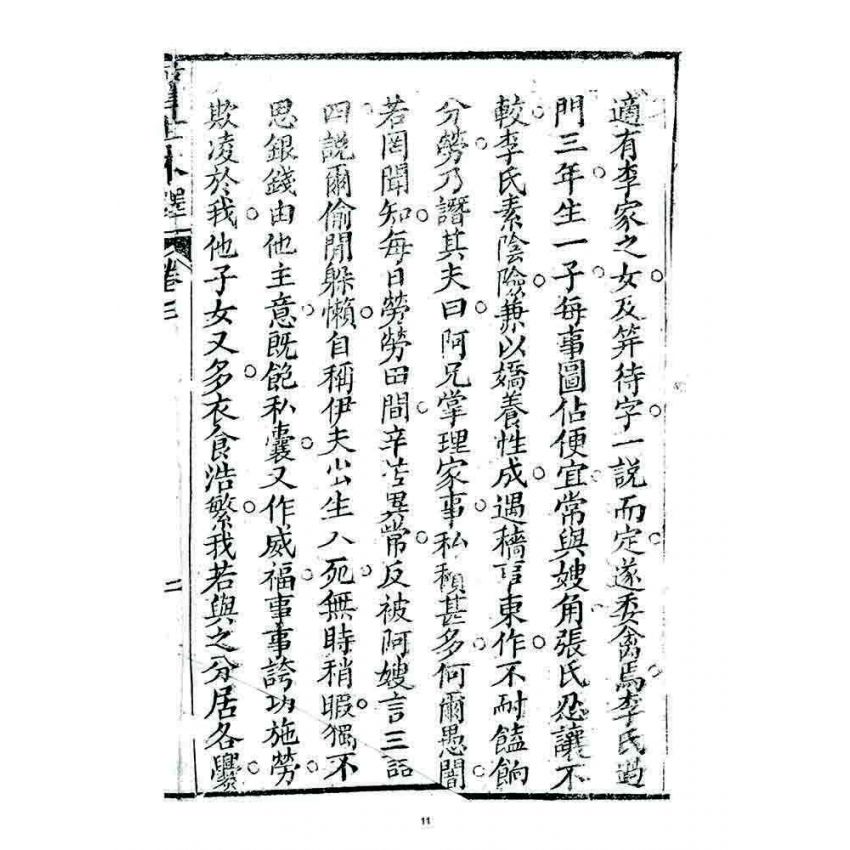 適有李家之女及笄待字一説而定遂委禽焉李氏過
門三年生一子每事圖佔便宜常與嫂角張氏忍讓不
較李氏素陰險兼以嬌養性成遇穡事東作不耐饁餉
分勞乃譖其夫曰阿兄掌理家事私積甚多何爾愚闇
若罔聞知每日勞勞田間辛苦異常反被阿嫂言三語
四説爾偷閒躲懶自稱伊夫出生入死無時稍暇獨不
思銀錢由他主意既飽私囊又作威福事事誇功施勞
欺凌於我他子女又多衣食浩繁我若與之分居各爨
卷三
二
11